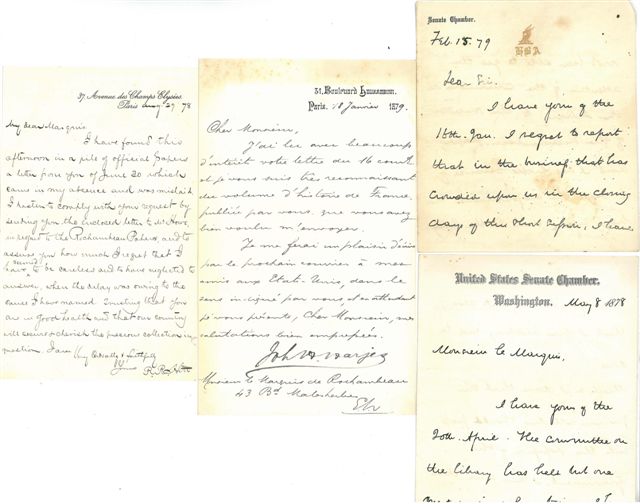 37 Avenue des Champs Elysées
Paris 27 78
My dear Marquis
I have found this
afternoon in a pile of official papers
a letter from you of June 20 which
came in my absence and was mislaid.
I hasten to comply with your request by
sending you the enclosed letter to
in regard to the Rochambeau Papers and to
assure you how much I regret that I
have to be careless and to have neglected to
answer, when the delay was owing to the
cause I have named. Trusting that you
are in good health and that our country
will secure & cherish the precious collection in
question. I am Very Cordially & faithfully
Yours
51, Boulevard Haussmann.
Paris, 18 Janvier 1879.
Cher Monsieur,
J'ai lu avec beaucoup
d'intérêt votre lettre du 16 court
et je vous suis très reconnaissant
du volume d'histoire de France,
publiée par vous, que vous avez
bien voulu m'envoyer.
Je me ferai un plaisir d'écrire
par le prochain courrier à mes
amis aux Etats-Unis, dans le
sens indiqué par vous, et en attendant
je vous présente, Cher Monsieur, mes
salutations bien empressées.
John
Monsieur le Marquis de Rochambeau
43 Bd Malesherbes
Senate Chamber.
HBA
Feb. 15. 79
Dear Sir.
I have yours of the
16th. Jan. I regret to report
that in the business that has
crowded upon us in the closing
days of the short session, I have
United States Senate Chamber.
Washington, May 8 1878
Monsieur le Marquis,
I have yours of the
20th. April. The committee on
the library has held but one